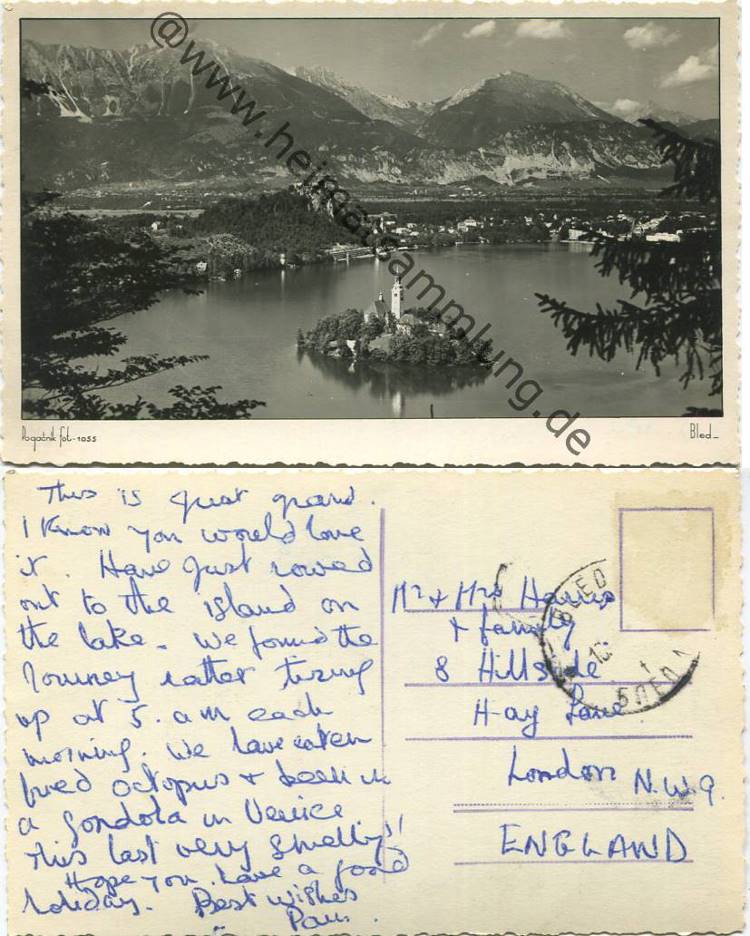 @www.heimatsammlung.de
Pogačnik fot-1055
Bled_
This is just grand.
I know you would love
it. Have just rowed
out to the island on
the lake. We found the
journey rather tiring
up at 5. am each
morning. We have eaten
fried octopus & been in
a gondola in Venice
this last very smelly!
Hope you have a good
holiday. Best wishes
Pam.
Mr & Mrs Harris
& family
8 Hillside
Hay Lane
London N.W.9.
ENGLAND
BLED
БЛЕД